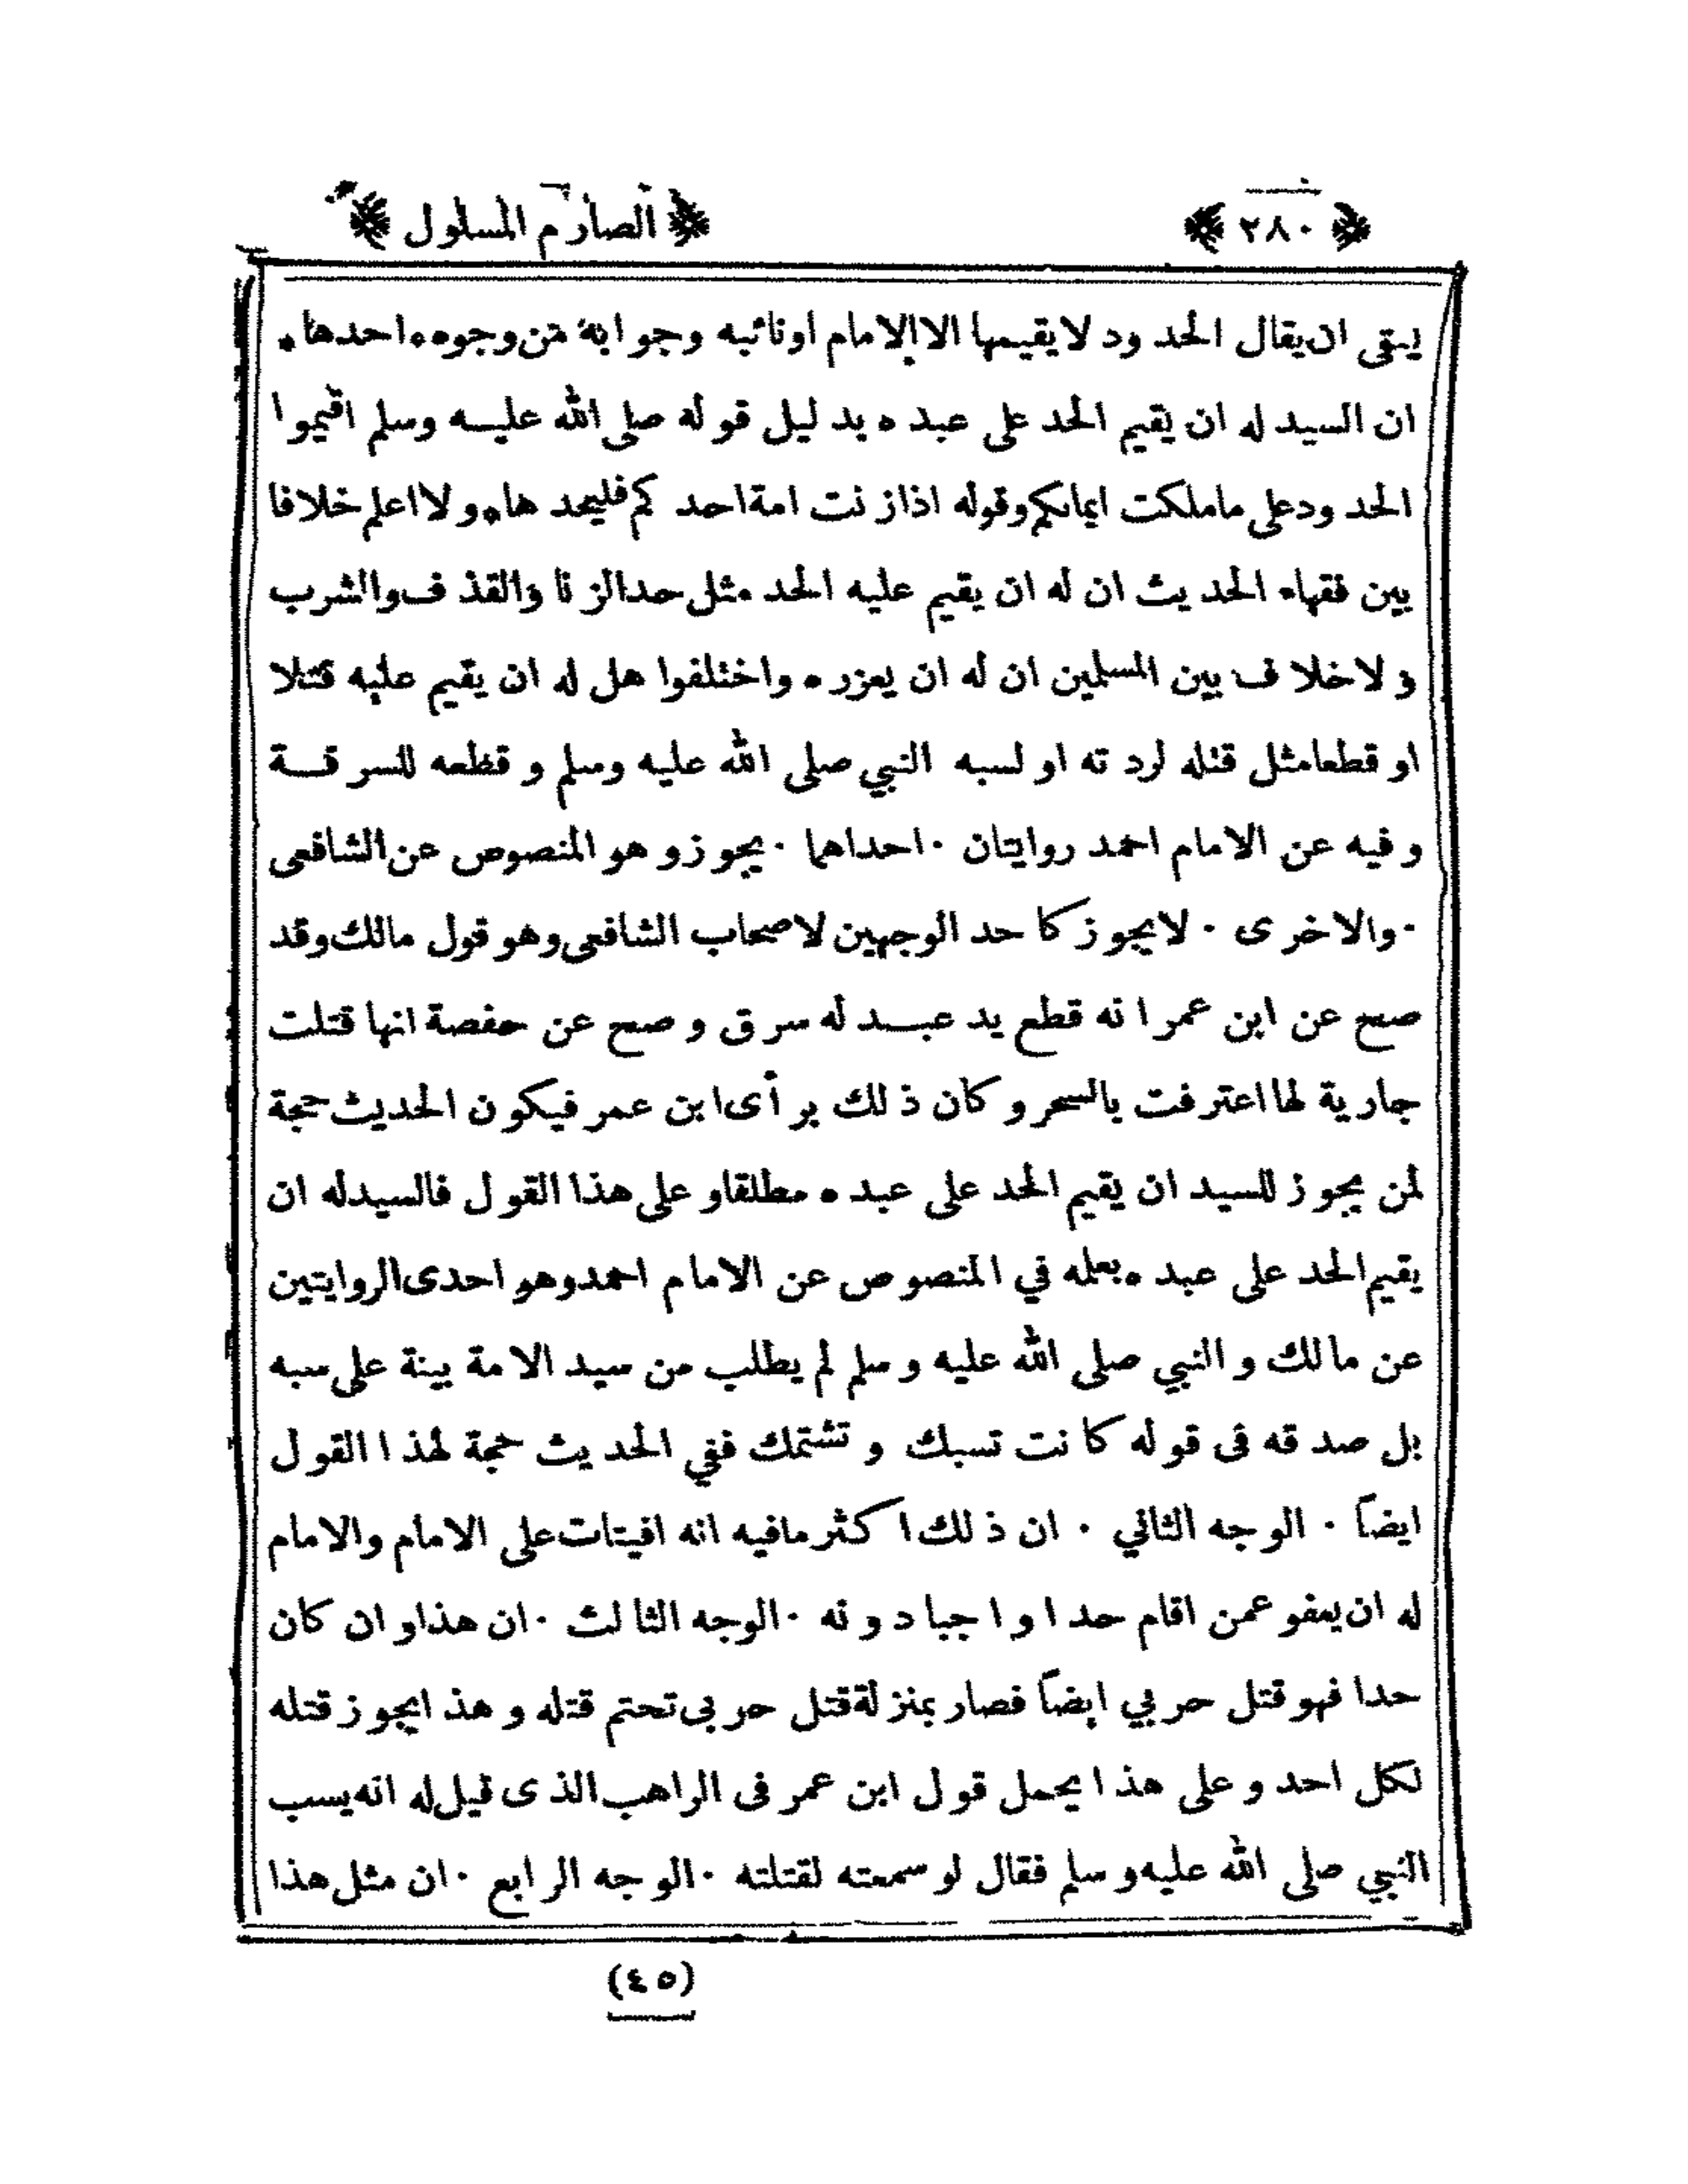 ﴿ ٢٨٠ ﴾ ﴿ الصارم المسلول ﴾
يبقى ان يقال الحدود لا يقيمها الا الامام او نائبه وجوابه من وجوه • احدها •
ان السيد له ان يقيم الحد على عبده بدليل قوله صلى الله عليه وسلم اقيموا
الحدود على ما ملكت ايمانكم وقوله اذا زنت امة احدكم فليحدها • ولا اعلم خلافا
بين فقهاء الحديث ان له ان يقيم عليه الحد مثل حد الزنا والقذف والشرب
ولا خلاف بين المسلمين ان له ان يعزره • واختلفوا هل له ان يقيم عليه قتلا
او قطعا مثل قتله لردته او لسبه النبي صلى الله عليه وسلم وقطعه للسرقة
وفيه عن الامام احمد روايتان • احداهما • يجوز وهو المنصوص عن الشافعى
• والاخرى • لا يجوز كاحد الوجهين لاصحاب الشافعى وهو قول مالك وقد
صح عن ابن عمر انه قطع يد عبد له سرق وصح عن حفصة انها قتلت
جارية لها اعترفت بالسحر وكان ذلك برأى ابن عمر فيكون الحديث حجة
لمن يجوز للسيد ان يقيم الحد على عبده مطلقا وعلى هذا القول فالسيد له ان
يقيم الحد على عبده بعلمه في المنصوص عن الامام احمد وهو احدى الروايتين
عن مالك والنبي صلى الله عليه وسلم لم يطلب من سيد الامة بينة على سبه
بل صدقه فى قوله كانت تسبك وتشتمك ففي الحديث حجة لهذا القول
ايضاً • الوجه الثاني • ان ذلك اكثر مافيه انه افتيات على الامام والامام
له ان يعفو عمن اقام حدا واجبا دونه • الوجه الثالث • ان هذا وان كان
حدا فهو قتل حربي ايضاً فصار بمنزلة قتل حربى تحتم قتله وهذا يجوز قتله
لكل احد وعلى هذا يحمل قول ابن عمر فى الراهب الذى قيل له انه يسب
النبي صلى الله عليه وسلم فقال لو سمعته لقتلته • الوجه الرابع • ان مثل هذا
(٤٥)